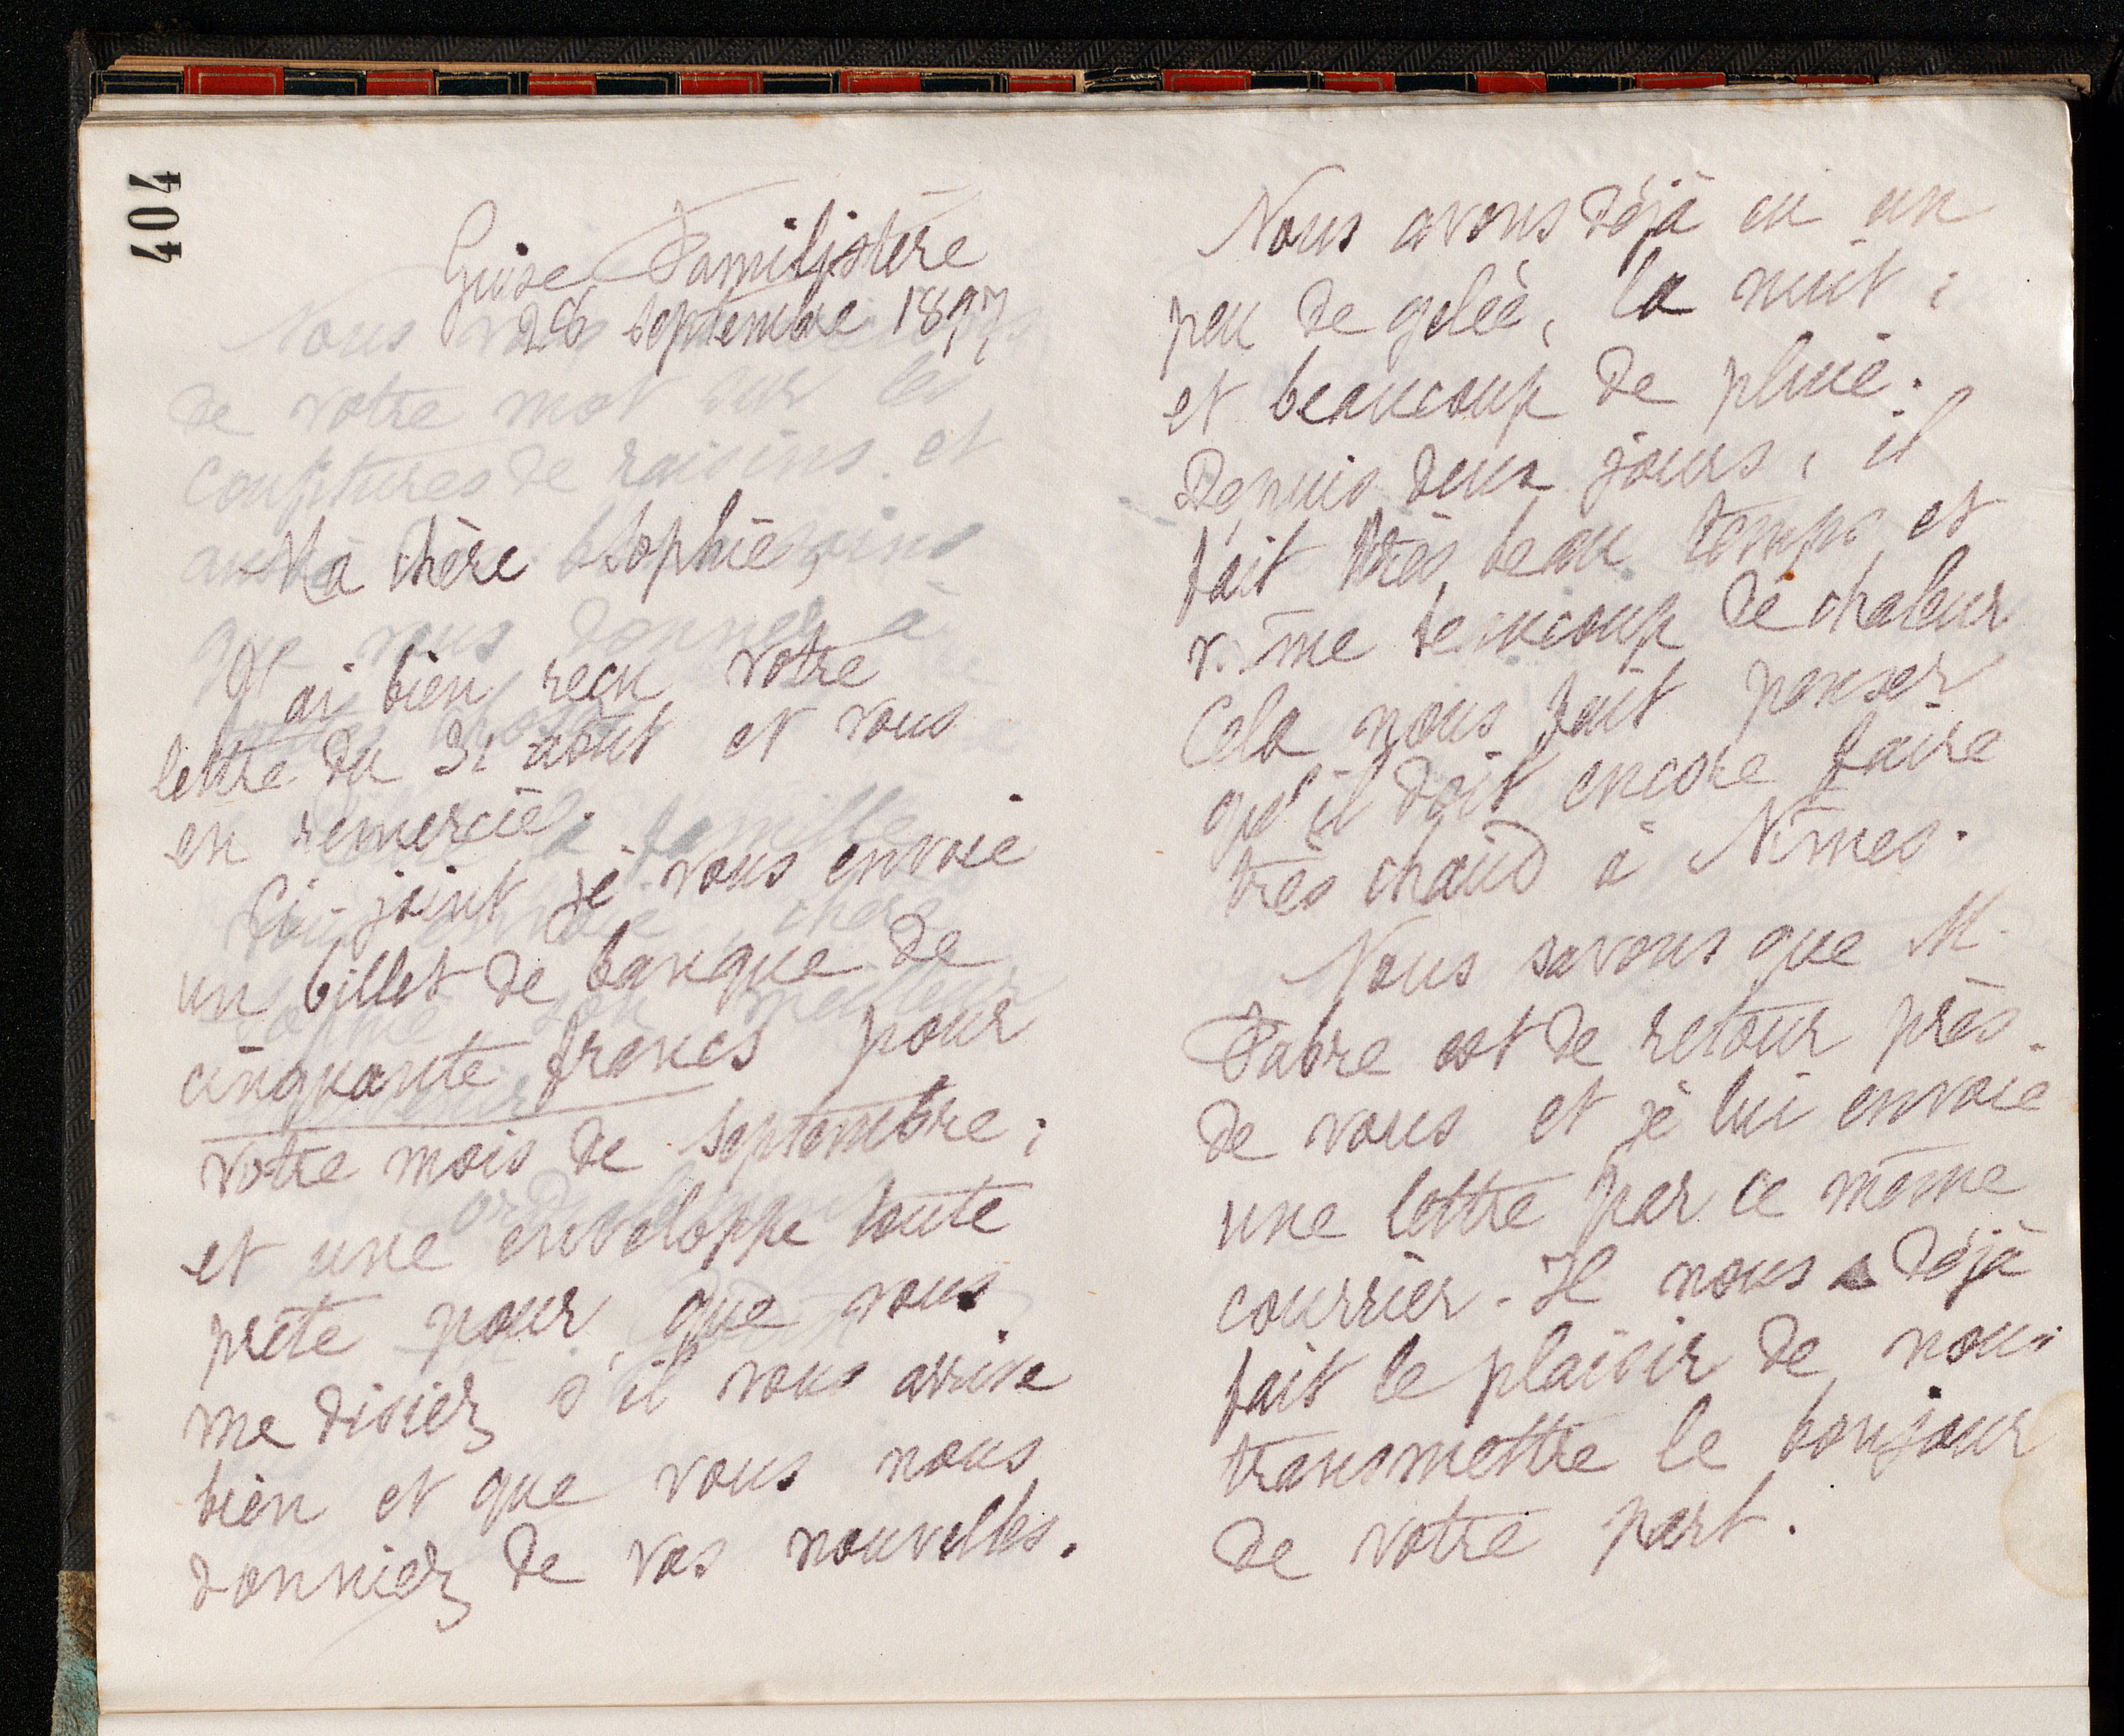 404
Guise Familistère
26 septembre 1897
Ma chère Sophie,
J'ai bien reçu votre
lettre du 31 août et vous
en remercie.
Ci joint je vous envoie
un billet de banque de
cinquante francs pour
votre mois de septembre ;
et une enveloppe toute
prête pour que vous
me disiez s'il vous arrive
bien et que vous nous
donniez de vos nouvelles.
Nous avons déjà eu un
peu de gelée, la nuit ;
et beaucoup de pluie.
Depuis deux jours, il
fait très beau temps et
même beaucoup de chaleur
Cela nous fait penser
qu'il doit encore faire
très chaud à Nîmes.
Nous savons que M.
Fabre est de retour près
de vous et je lui envoie
une lettre par ce même
courrier. Il nous a déjà
fait le plaisir de nous
transmettre le bonjour
de votre part.